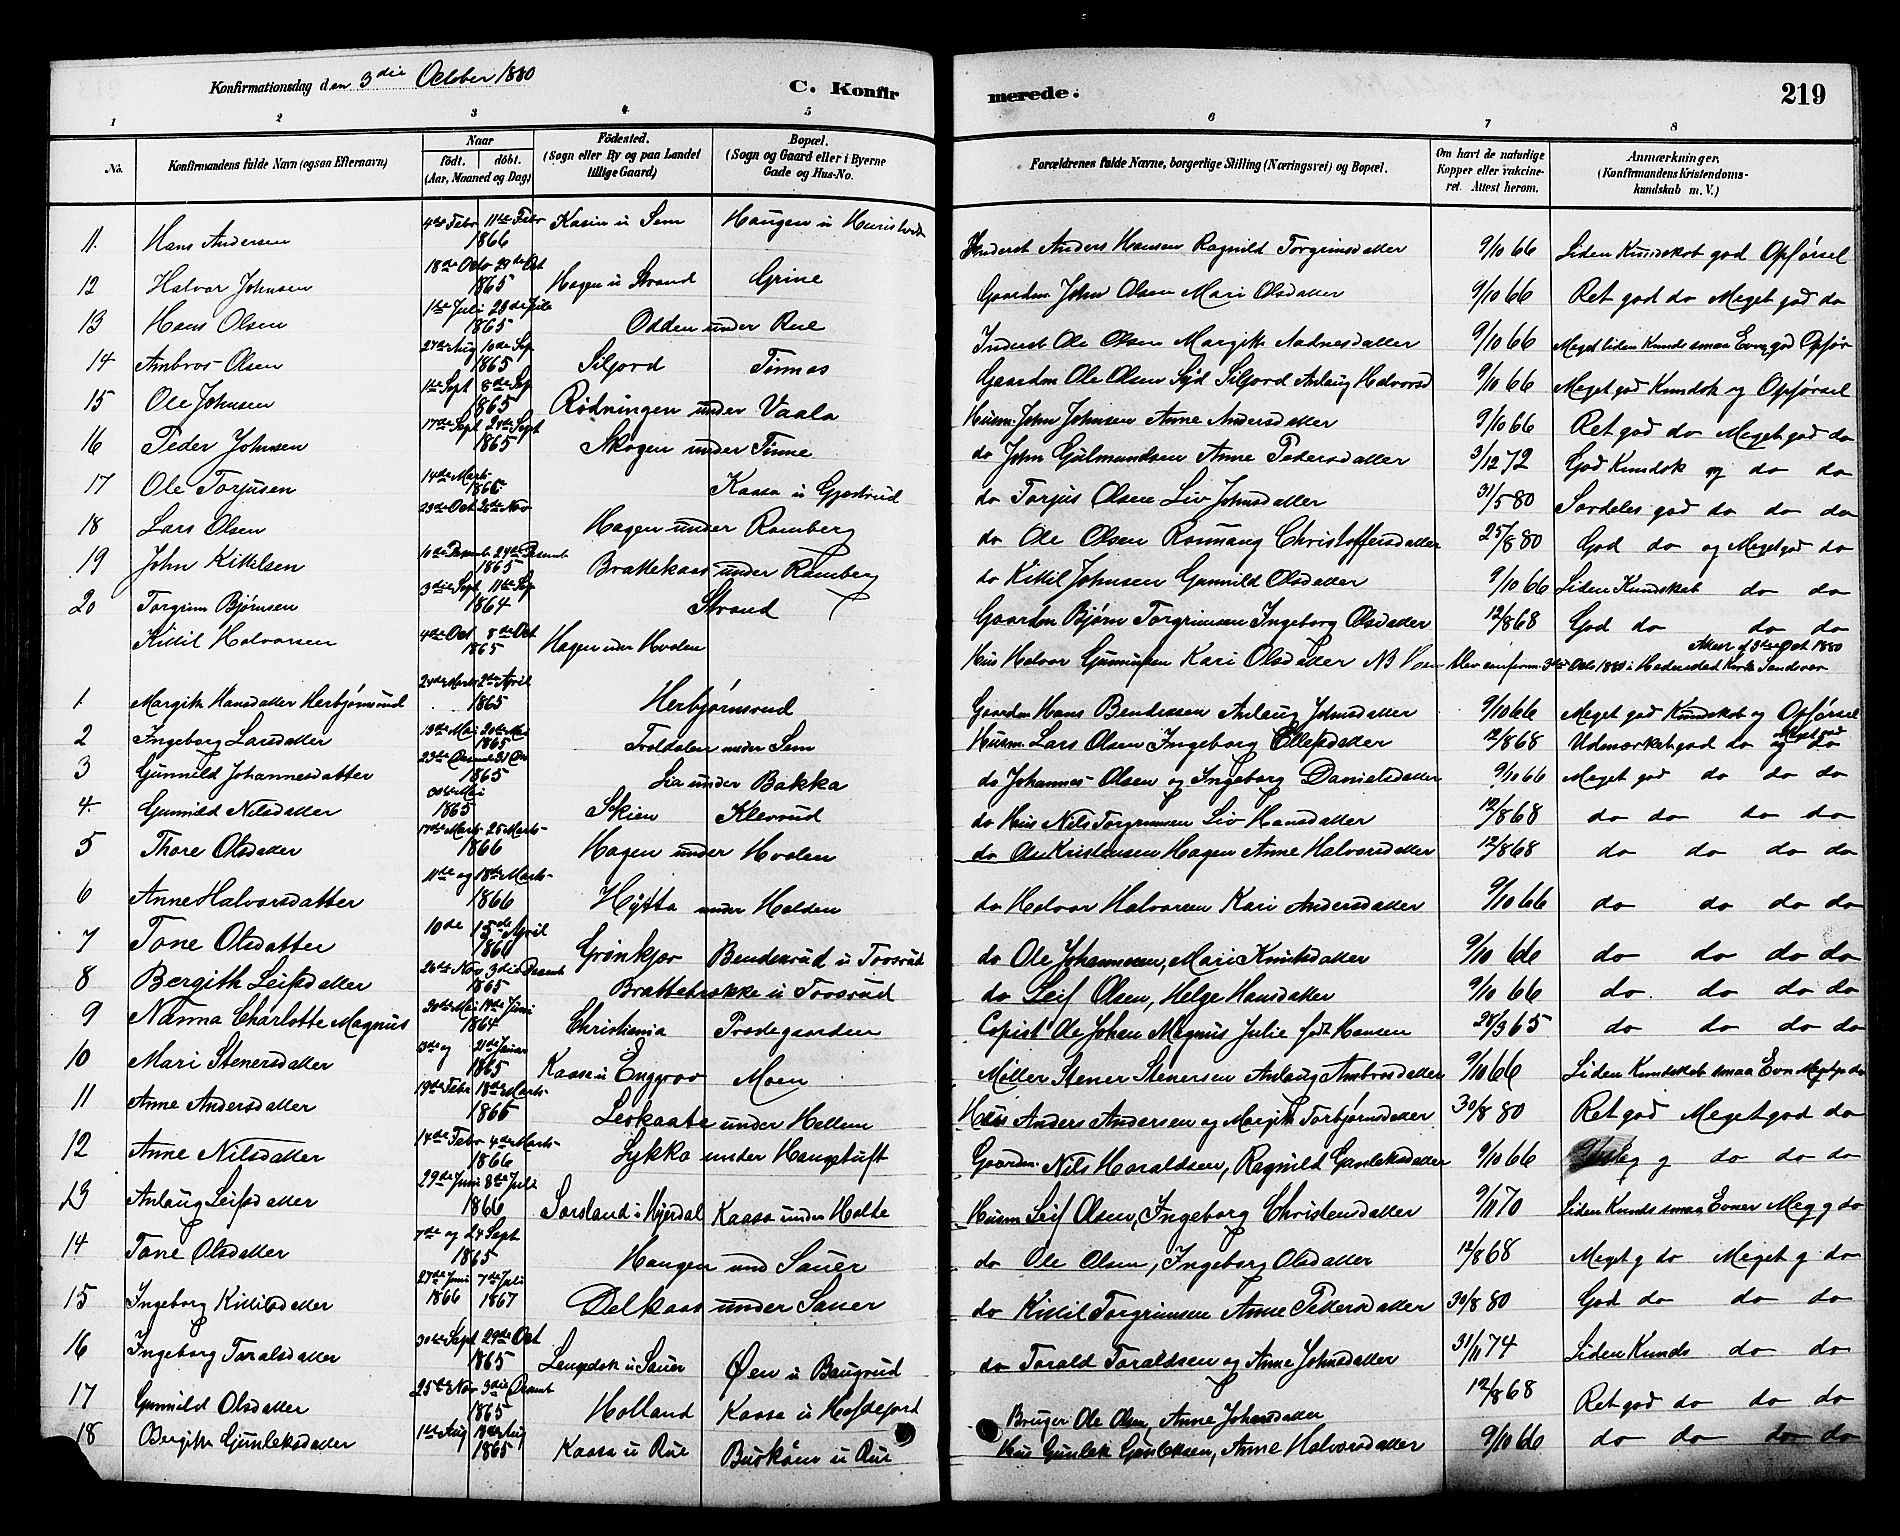 Konfirmationsdag den 3die October 1880
C. Konfirmerede. 219
1 2 3 4 5 6 7 8
No. Konfirmandens fulde Navn (ogsaa Efternavn) Naar født. døbt. (Aar, Maaned og Dag) Fødested. (Sogn eller By og paa Landet tillige Gaard) Bopæl. (Sogn og Gaard eller i Byerne Gade og Hus-No. Forældrenes fulde Navne, borgerlige Stilling (Næringsvei) og Bopæl. Om havt de naturlige Kopper eller vakcineret. Attest herom. Anmærkninger. (Konfirmandens Kristendomskundskab m. V.)
11. Hans Andersen 4de Febr 11te Febr 1866 Kasin u Sem Haugen u Anders Hansen Ragnild Torgrimsdatter 9/10 66 Liden Kundskab god Opførsel
12 Halvor Johnsen 18de Octo 29de Oct 1865 Hagen u Strand Grine Gaardm John Olsen Mari Olsdatter 9/10 66 Ret god do Meget god do
13 Hans Olsen 1ste Juli 1865 Odden under Rue Inderst Ole Olsen Margith Aadnesdatter 9/10 66 Meget liden Kunds smaa Evne god Opfør
14 Ambros Olsen 27de Aug 10de Sep 1865 Siljord Tinnes Gaardm Ole Olsen Siljord Anlaug Halvorsd 9/10 66 Meget god Kundsk og Opførsel
15 Ole Johnsen 1ste Sept 8de Sep 1865 Rødningen under Vaala Husm John Johnsen Anne Andersdatter 9/10 66 Ret god do Meget god do
16 Peder Johnsen 17de Sept 24de Sept 1865 Skogen under Tinne do John Gulmundsen Anne Pedersdatter 3/12 72 God Kundsk og do do
17 Ole Torjusen 14de Marts 1866 Kaasa u Gjestrud do Torjus Olsen Liv Johnsdatter 31/5 80 Særdeles god do do do
18 Lars Olsen 23de Oct 2de Nov Hagen under Ramberg do Ole Olsen Rønnaug Christoffersdatter 25/8 80 God do og Meget god do
19 John Kittelsen 10de Desemb 24de Desemb 1865 Brattekaas under Ramberg do Kittil Johnsen Gunnild Olsdatter 9/10 66 Liden Kundskab do do
20 Torgrim Bjørnsen 3die Sept 11te Sep 1864 Strand Gaardm Bjørn Torgrimsen Ingeborg Olsdatter 12/8 68 God do do do
Kittil Halvorsen 4de Oct 8de Oct 1865 Hagen under Hvalen Hus Halvor Kari Olsdatter NB blev confirm 3die Octo 1880 i Hedensted Kirke Sandsvær
1. Margith Hansdatter Herbjørnsrud 24de Marts 2de April 1865 Herbjørnsrud Gaardm Hans Bendixsen Anlaug Johnsdatter 9/10 66 Meget god Kundskab og Opførsel
2 Ingeborg Larsdatter 19de Mai 20de Mai 1865 Troldalen under Sem Husm Lars Olsen Ingeborg Ellefsdatter 12/8 68 Udmærket god do og Meget god do
3 Gunnild Johannesdatter 1865 Lia under Bakka do Johannes Olsen og Ingeborg Danielsdatter 9/10 66 Meget god do do do
4. Gunnild Nilsdatter Mai 1865 Skien Klevrud do Hus Nils Torgrimsen Liv Hansdatter 12/8 68 do do do do
5 Thore Olsdatter 17de Marts 25 Marts 1866 Hagen under Hvalen do Ole Kristensen Hagen Anne Halvorsdatter 12/8 68 do do do do
6 Anne Halvorsdatter 11te og 18de Marts 1866 Hytta under Holden do Halvor Halvorsen Kari Andersdatter 9/10 66 do do do do
7 Tone Olsdatter 10de 15de April 1866 Grønkjær Bendiksrud u Toosrud do Ole Johannesen, Mari Knudsdatter 9/10 66 do do do do
8 Bergith Leifsdatter 26de Nov 3die Desemb 1865 Brattebrække u Toosrud do Leif Olsen, Helge Hansdatter 9/10 66 do do do do
9 Nanna Charlotte Magnus 20de Mai Juni 1864 Christiania Prestegaarden Copist Ole Johan Magnus Julie født Hansen 28/3 65 do do do do
10 Mari Stenersdatter 3de og 21de Januar 1865 Kaasa u Enggrav Moen Møller Stener Stenersen Anlaug Ambrosdatter 9/10 66 Liden Kundskab smaa Evn Meget g do
11 Anne Andersdatter 19de Febr 18de Marts 1866 Leskaabe under Hellem Hus Anders Andersen og Margith Torbjørnsdatter 30/8 80 Ret god Meget god do
12 Anne Nilsdatter 14de Febr 4de Marts 1866 Lykka under Haugstuft Gaardm Nils Haraldsen, Ragnild Gunleksdatter 9/10 66 g do do do
13 Anlaug Leifsdatter 29de Juni 8de Juli 1866 Sørsland i Hjerdal Kaasa under Holte Husm Leif Olsen, Ingeborg Christensdatter 9/11 70 Liden Kunds smaa Evner Meg g do
14 Tone Olsdatter 7de og 24 Sept 1865 Haugen und Sauer do Ole Olsen, Ingeborg Olsdatter 12/8 68 Meget g do Meget g do
15 Ingeborg Kittilsdatter 27de Juni 1866 7de Juli 1867 Delkaas under Sauer do Kittil Torgrimsen Anne Pedersdatter 30/8 80 God do do do
16 Ingeborg Taralsdatter 30te Sept 29de Oct 1865 Langedok u Sauer Øen u Baugrud do Torald Toraldsen og Anne Johnsdatter 31/11 74 Liden Kunds do do
17 Gunnild Olsdatter 25de Nov 3die Desemb 1865 Holland Kaasa u Hofdejord Bruger Ole Olsen, Anne Johansdatter 12/8 68 Ret god do do do
18 Bergith Gunleksdatter 1ste Aug Aug 1865 Kaasa u Rue Buskåsen u Rue Hus Gunlek Gunleksen, Anne Halvorsdatter 9/10 66 do do do do